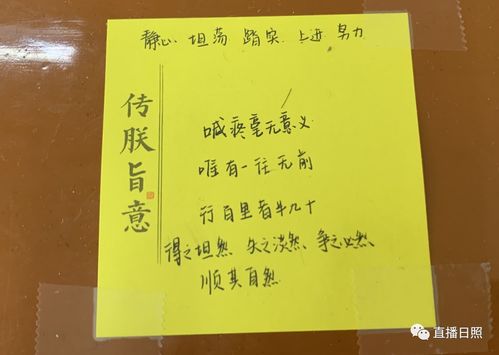 静心 坦荡 踏实 上进 努力
传朕旨意
喊疼毫无意义
唯有一往无前
行百里者半九十
得之坦然、失之淡然、争之必然、
顺其自然
直播日照